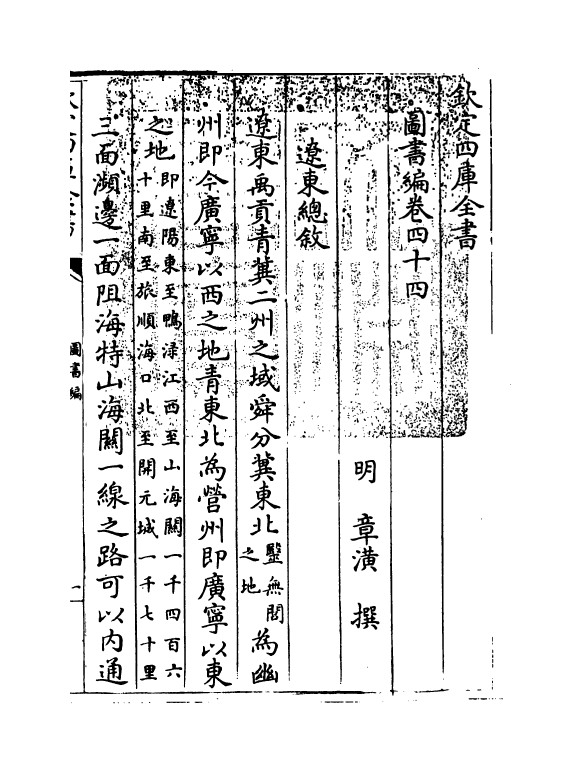 欽定四庫全書
圖書編卷四十四
明 章潢 撰
遼東總敘
遼東禹貢青冀二州之域舜分冀東北毉無閭之地為幽
州即今廣寧以西之地青東北為營州即廣寧以東
之地即遼陽東至鴨渌江西至山海關一千四百六十里南至旅順海口北至開元城一千七十里
三面瀕邊一面阻海特山海關一線之路可以內通
圖書編
一